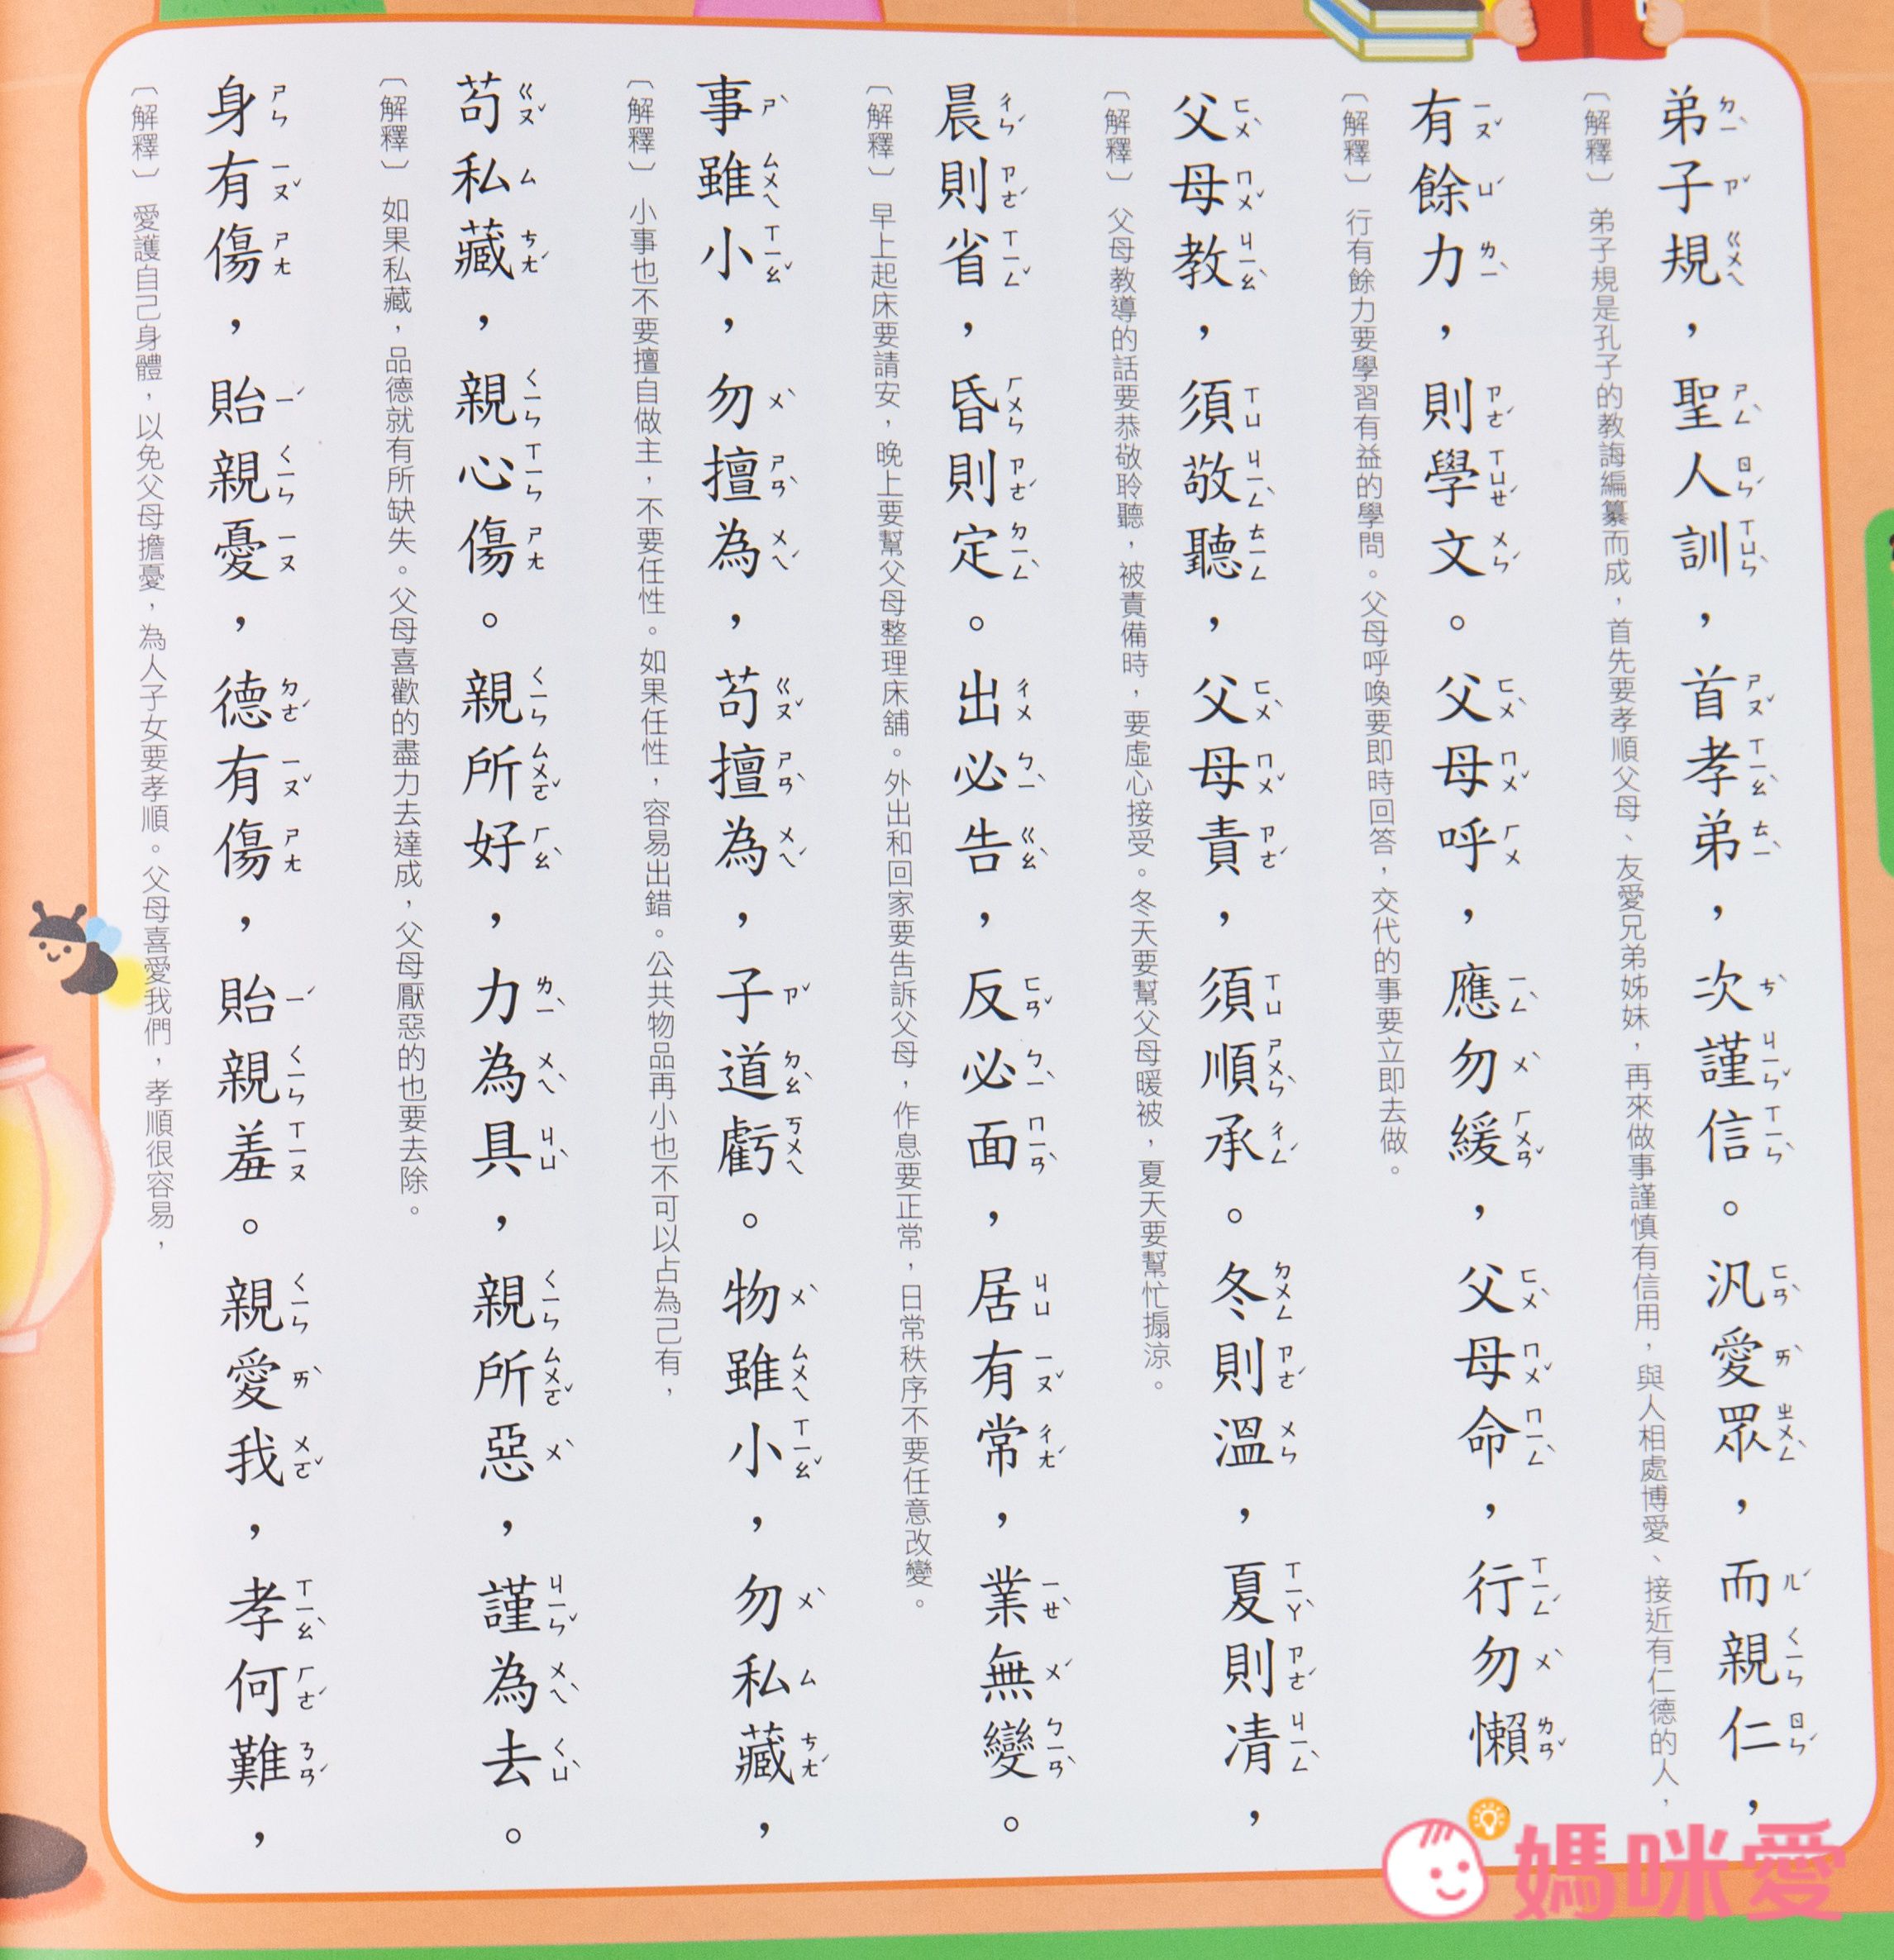 弟子規，聖人訓，首孝弟，次謹信。汎愛眾，而親仁，
〔解釋〕弟子規是孔子的教誨編纂而成，首先要孝順父母、友愛兄弟姊妹，再來做事謹慎有信用，與人相處博愛、接近有仁德的人，
有餘力，則學文。父母呼，應勿緩，父母命，行勿懶
〔解釋〕行有餘力要學習有益的學問。父母呼喚要即時回答，交代的事要立即去做。
父母教，須敬聽，父母責，須順承。冬則溫，夏則凊，
〔解釋〕父母教導的話要恭敬聆聽，被責備時，要虛心接受。冬天要幫父母暖被，夏天要幫忙搧涼。
晨則省，昏則定。出必告，反必面，居有常，業無變。
〔解釋〕早上起床要請安，晚上要幫父母整理床舖。外出和回家要告訴父母，作息要正常，日常秩序不要任意改變。
事雖小，勿擅為，苟擅為，子道虧。物雖小，勿私藏，
〔解釋〕小事也不要擅自做主，不要任性。如果任性，容易出錯。公共物品再小也不可以占為己有，
苟私藏，親心傷。親所好，力為具，親所惡，謹為去。
〔解釋〕如果私藏，品德就有所缺失。父母喜歡的盡力去達成，父母厭惡的也要去除。
身有傷，貽親憂，德有傷，貽親羞。親愛我，孝何難，
〔解釋〕愛護自己身體，以免父母擔憂，為人子女要孝順。父母喜愛我們，孝順很容易，
媽咪愛